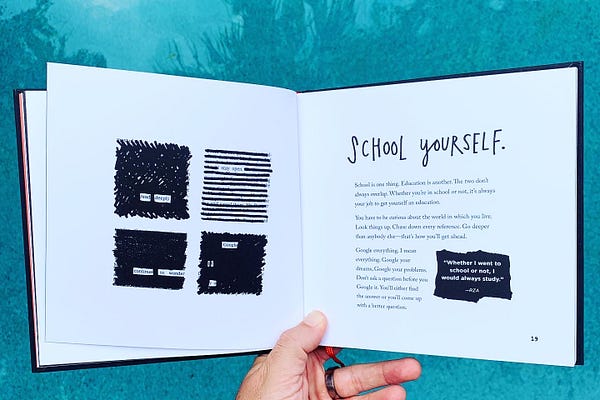 read deeply
stay open
continue to wonder
Google
SCHOOL YOURSELF.
School is one thing. Education is another. The two don't
always overlap. Whether you're in school or not, it's always
your job to get yourself an education.
You have to be curious about the world in which you live.
Look things up. Chase down every reference. Go deeper
than anybody else—that's how you'll get ahead.
Google everything. I mean
everything. Google your
dreams, Google your problems.
Don't ask a question before you
Google it. You'll either find
the answer or you'll come up
with a better question.
"Whether I went to
school or not, I
would always study."
—RZA
19